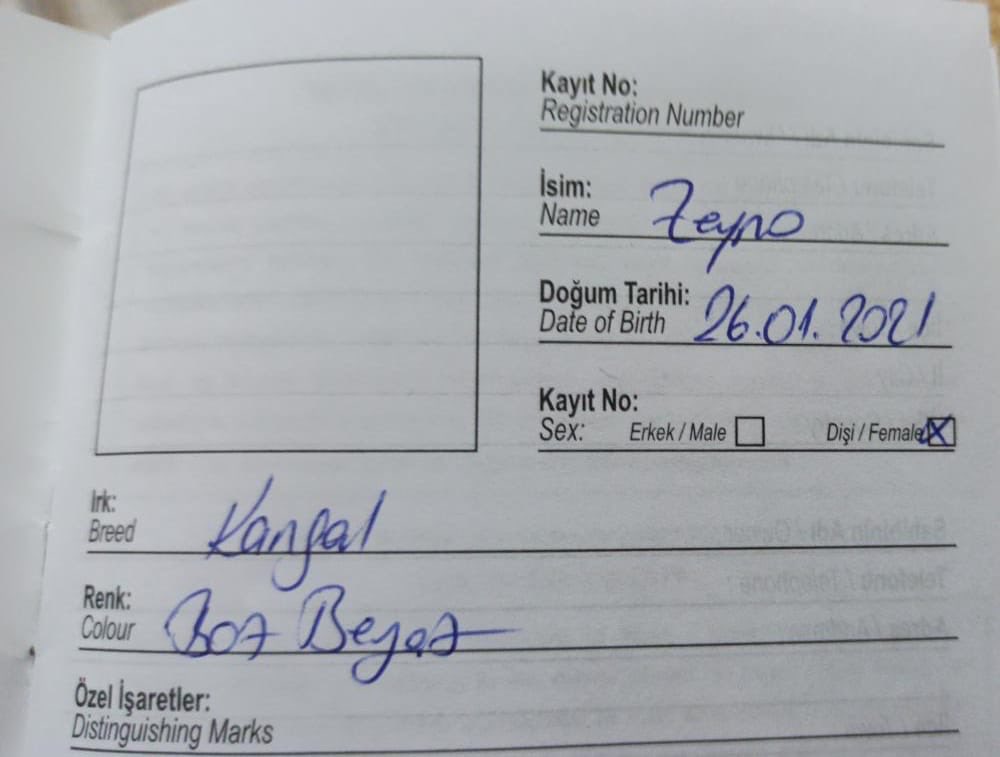 Kayıt No:
Registration Number
İsim:
Name Zeyno
Doğum Tarihi:
Date of Birth 26.01.2021
Kayıt No:
Sex: Erkek / Male Dişi / Female X
Irk:
Breed Kangal
Renk:
Colour Boz Beyaz
Özel İşaretler:
Distinguishing Marks